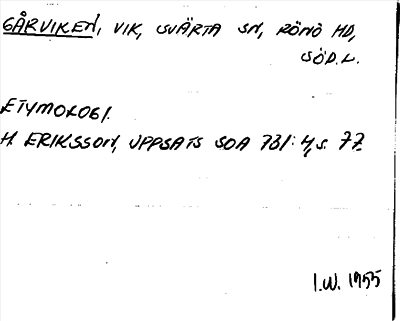 GÅRVIKEN, VIK, SVÄRTA SN, RÖNÖ HD,
SÖD.L.
ETYMOLOGI.
H. ERIKSSON, UPPSATS SOA 731:4, s. 77.
I.W. 1955